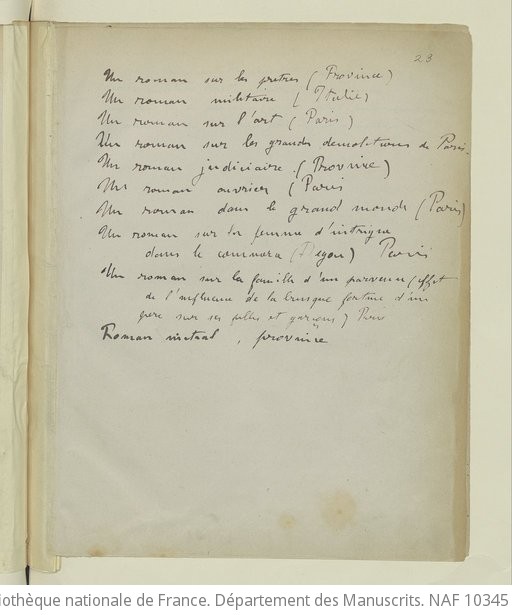 23
Un roman sur les prêtres (Province)
Un roman militaire (Italie)
Un roman sur l'art (Paris)
Un roman sur les grandes démolitions de Paris.
Un roman judiciaire. (Province)
Un roman ouvrier (Paris
Un roman dans le grand monde (Paris)
Un roman sur la femme d'intrigue
dans le commerce ( ) Paris
Un roman sur la famille d'un parvenu (effet
de l'influence de la brusque fortune d'un
père sur ses filles et garçons) Paris
Roman initial, province
iothèque nationale de France. Département des Manuscrits. NAF 10345